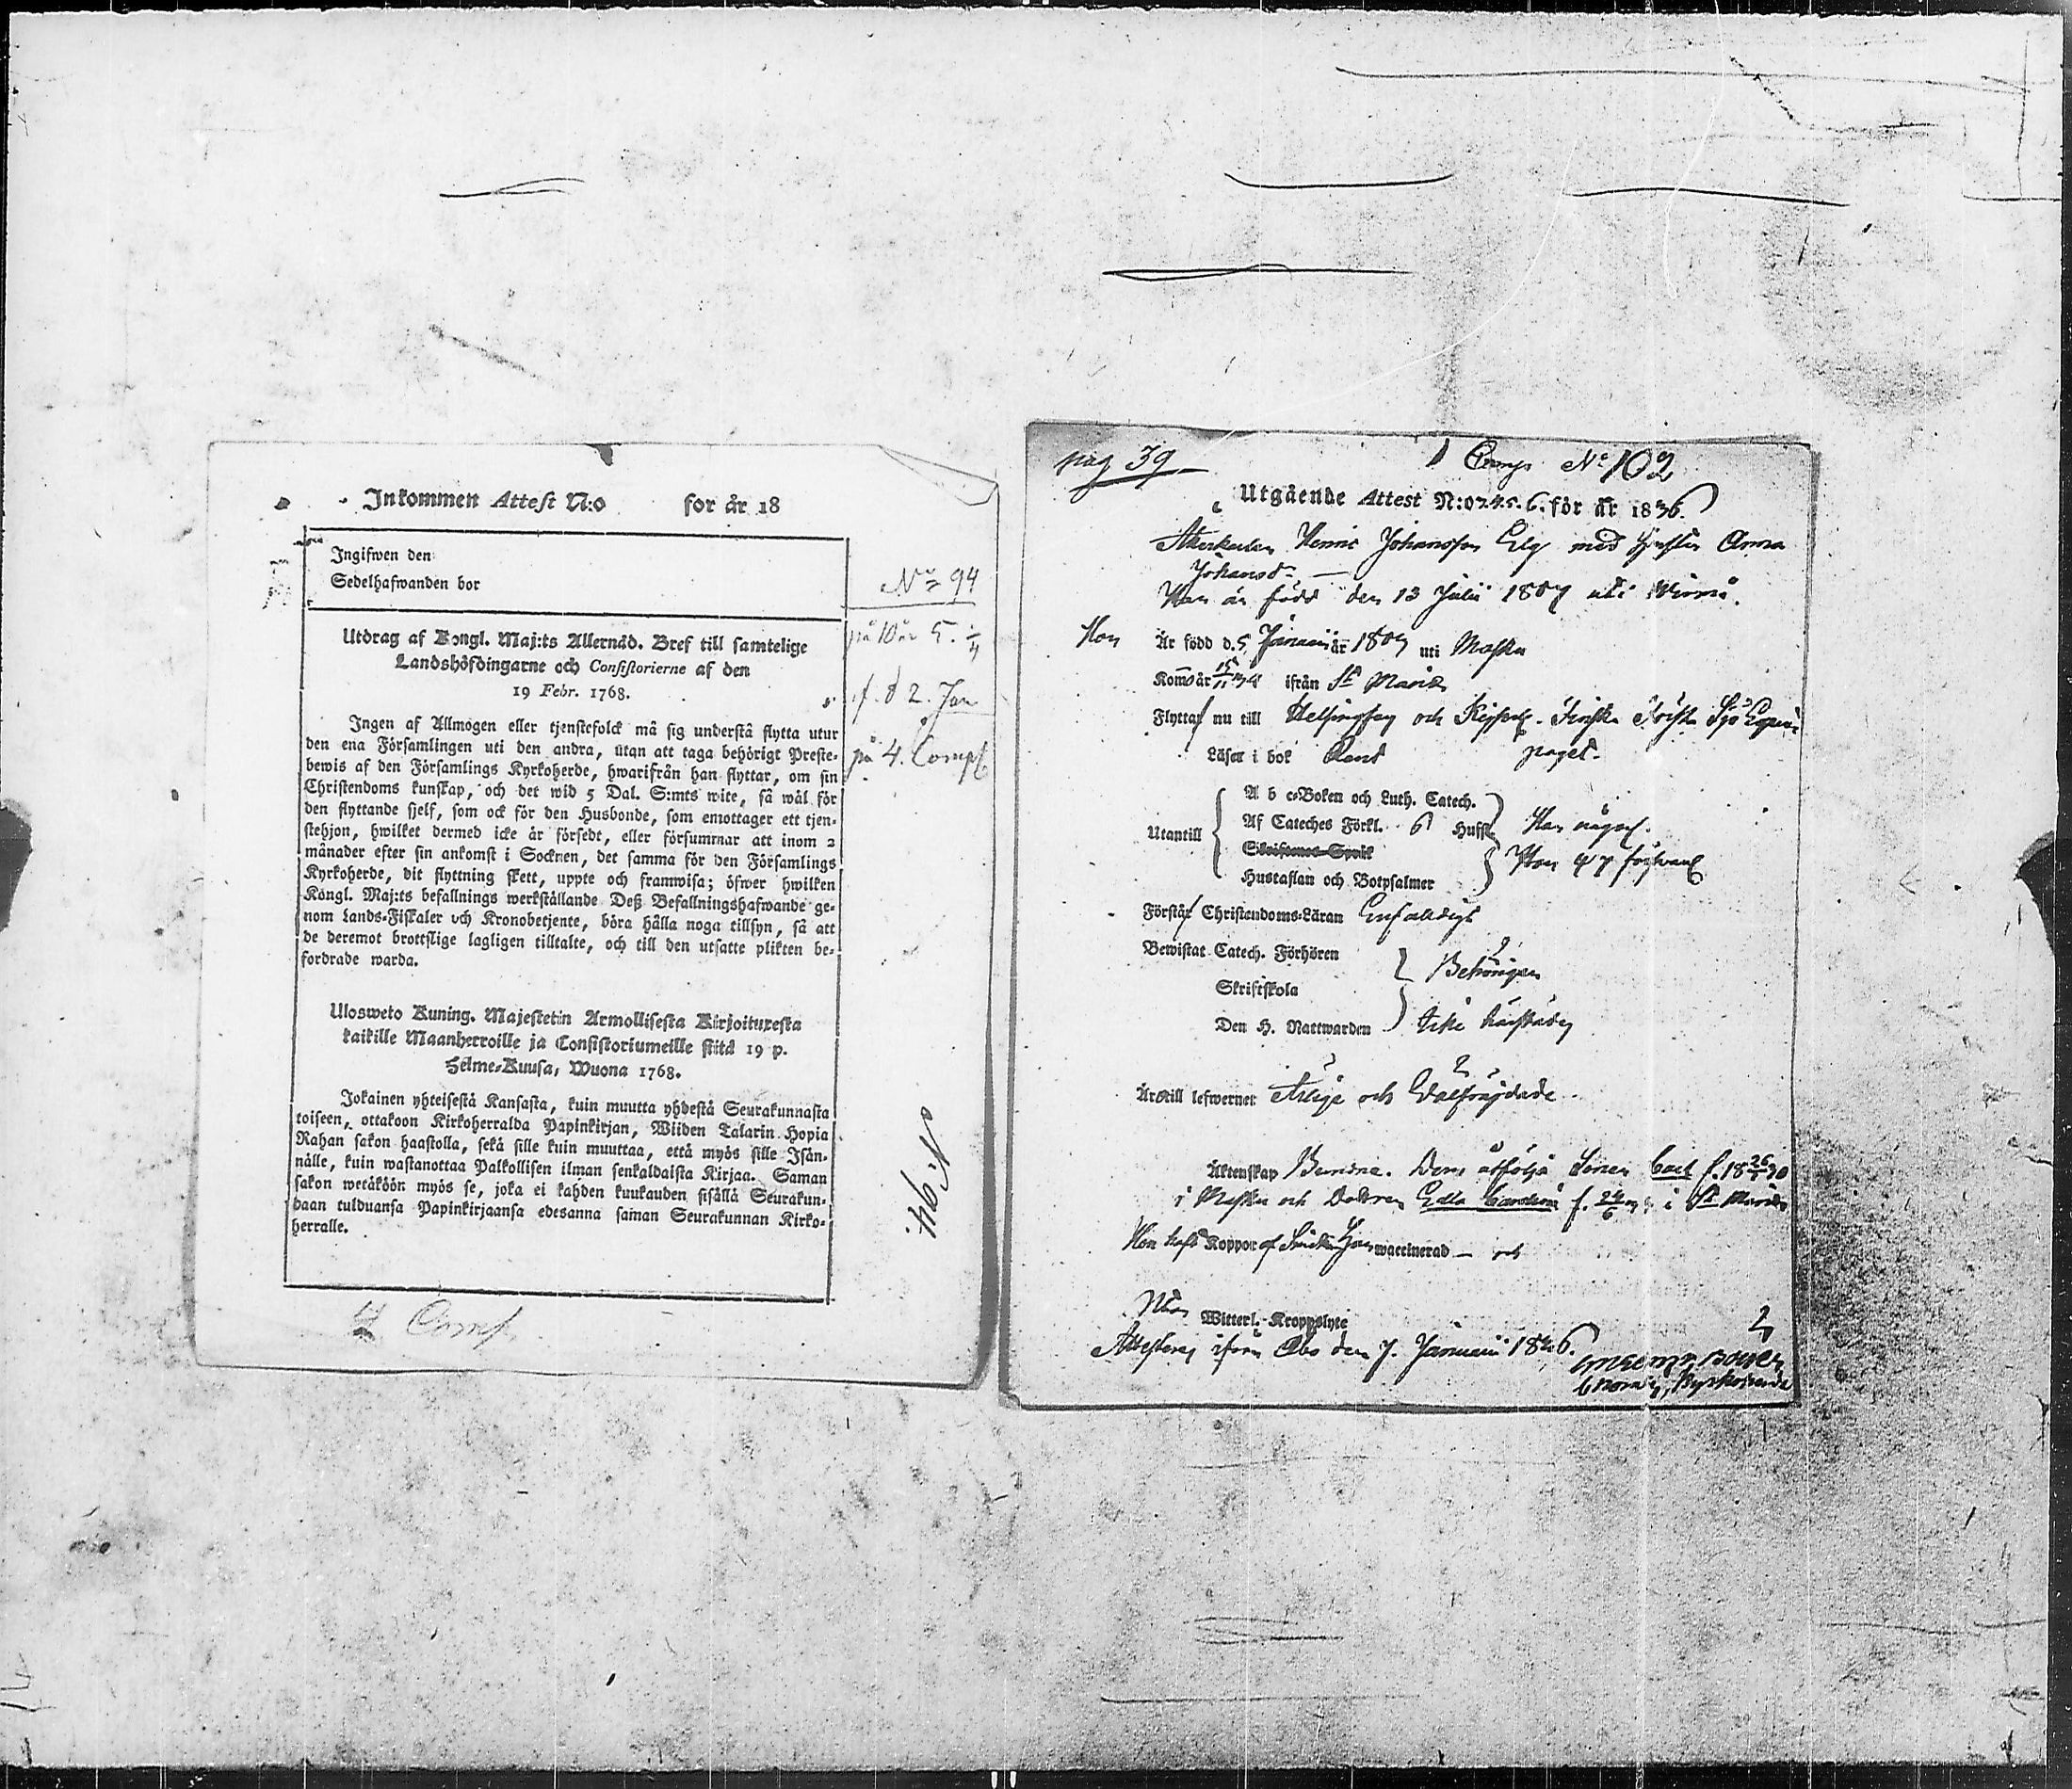 Inkommen Attest N:o for år 18
Ingifwen den
Sedelhafwanden bor
Utdrag af Kongl. Maj:ts Allernåd. Bref till samtelige
Landshöfdingarne och Consistorierne af den
19 Febr. 1768.
Ingen af Allmogen eller tjenstefolck må sig understå flytta utur
den ena Församlingen uti den andra, utan att taga behörigt Preste-
bewis af den Församlings Kyrkoherde, hwarifrån han flyttar, om sin
Christendoms kunskap, och det wid 5 Dal. S:mts wite, så wäl för
den flyttande sjelf, som ock för den Husbonde, som emottager ett tjen-
stehjon, hwilket dermed icke är försedt, eller försummar att inom 2
månader efter sin ankomst i Socknen, det samma för den Församlings
Kyrkoherde, dit flyttning skett, uppte och framwisa; öfwer hwilken
Kongl. Maj:ts befallnings werkställande Deß Befallningshafwande ge-
nom Lands-Fiskaler och Kronobetjente, böra hålla noga tillsyn, så att
de deremot brottslige lagligen tilltalte, och till den utsatte plikten be-
fordrade warda.
Ulosweto Kuning. Majestetin Armollisesta Kirjoituxesta
kaikille Maanherroille ja Consistoriumeille siitä 19 p.
Helme-Kuusa, Wuona 1768.
Jokainen yhteisestä Kansasta, kuin muutta yhdestä Seurakunnasta
toiseen, ottakoon Kirkoherralda Papinkirjan, Wiiden Talarin Hopia
Rahan sakon haastolla, sekä sille kuin muuttaa, että myös sille Isän-
nälle, kuin wastanottaa Palkollisen ilman senkaldaista Kirjaa. Saman
sakon wetäköön myös se, joka ei kahden kuukauden sisällä Seurakun-
daan tulduansa Papinkirjaansa edesanna saman Seurakunnan Kirko-
herralle.
4 Comp.
No 94
på 10 år
f. d 2. Jan
på 4. Comp
No 94.
pag 39
1 Comp No 102
Utgående Attest N:o 2.4.5.6. för år 1836
Henric Johansson Elg med Hustru Anna
Johansd.
Han är född den 13 Julii 1807 uti Wirmo.
Hon Är född d. 5 Januari år 1809 uti Masku
Kom år ifrån St Mariæ
Flytta nu till Helsingfors och
Läser i bok
paget.
Utantill
A b c-Boken och Luth. Catech.
Af Cateches Förkl. 6 Hufst
Skriftenes Språk
Hustaflan och Botpsalmer
Han något.
Hon
Förstår Christendoms-Läran Enfaldigt
Bewistat Catech. Förhören
Skriftskola
Den H. Nattwarden
Behörigen
Är till lefwernet Ärliga och Wälfrägdade
Äktenskap Bundne. Dem åtfölja Sonen Carl f. 18 26/ 30
i Masku och Dottren Edla Carolina f. 24/6 i St Mariæ
Hon haft Koppor wattinerad och
Utan Witterl. Kroppslyte
Attesteras ifrån Åbo den 7. Januarii 1836.
Kyrkoherde